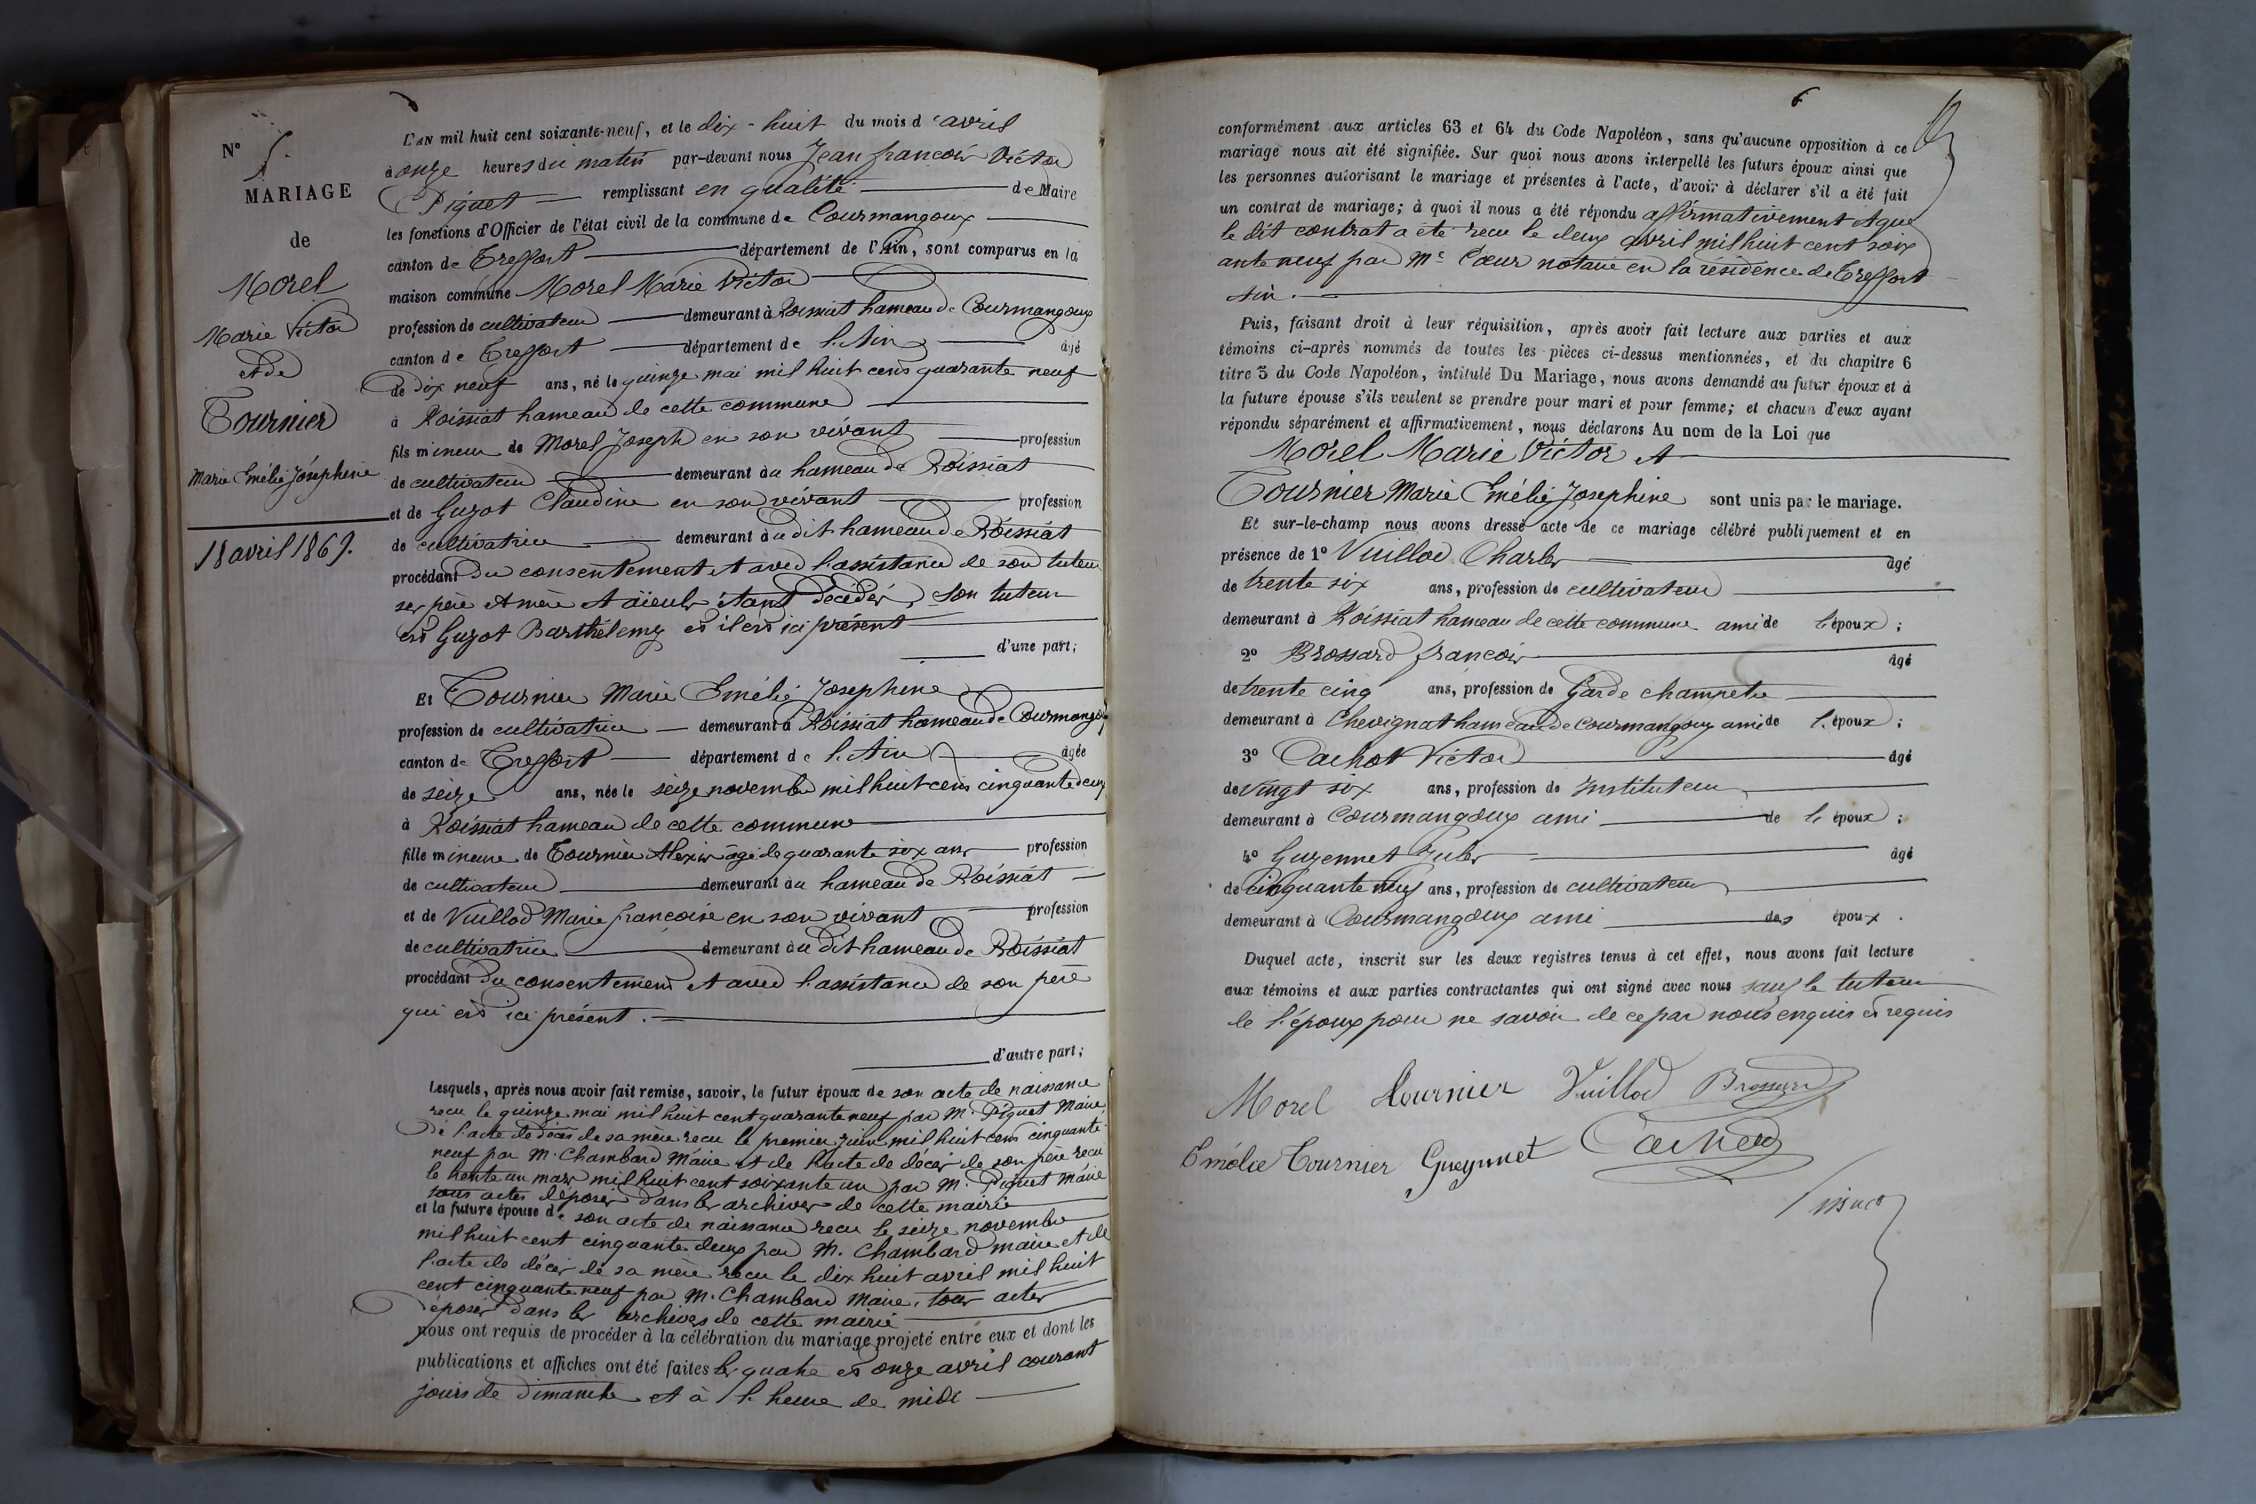 N° 5.
MARIAGE
de
Morel
Marie Victor
et de
Tournier
Marie Emélie Joséphine
18 avril 1869.
L'AN mil huit cent soixante-neuf, et le dix-huit du mois d'avril
à onze heures du matin par-devant nous Jean françois Victor
Piquet remplissant en qualité de Maire
les fonctions d'Officier de l'état civil de la commune de Courmangoux
canton de Treffort département de l'Ain, sont comparus en la
maison commune Morel Marie Victor
profession de cultivateur demeurant à Roissiat hameau de Courmangoux
canton de Treffort département de l'Ain âgé
de dix neuf ans, né le quinze mai mil huit cent quarante neuf
à Roissiat hameau de cette commune
fils mineur de Morel Joseph en son vivant profession
de cultivateur demeurant au hameau de Roissiat
et de Guyot Claudine en son vivant profession
de cultivatrice demeurant au dit hameau de Roissiat
procédant du consentement et avec l'assistance de son tuteur
ses père et mère et aïeuls étant décédés, son tuteur
est Guyot Barthélemy et il est ici présent
d'une part;
Et Tournier Marie Emélie Josephine
profession de cultivatrice demeurant à Roissiat hameau de Courmangoux
canton de Treffort département de l'Ain âgée
de seize ans, née le seize novembre mil huit cent cinquante deux
à Roissiat hameau de cette commune
fille mineure de Tournier Alexis âgé de quarante six ans profession
de cultivateur demeurant au hameau de Roissiat
et de Vuillod Marie françoise en son vivant profession
de cultivatrice demeurant au dit hameau de Roissiat
procédant du consentement et avec l'assistance de son père
qui est ici présent.
d'autre part;
Lesquels, après nous avoir fait remise, savoir, le futur époux de son acte de naissance
recu le quinze mai mil huit cent quarante neuf par M. Piquet Maire
de l'acte de décès de sa mère recu le premier juin mil huit cent cinquante
neuf par M. Chambard Maire et de l'acte de décès de son père recu
le trente un mars mil huit cent soixante un par M. Piquet Maire
tous actes déposés dans les archives de cette mairie
et la future épouse de son acte de naissance recu le seize novembre
mil huit cent cinquante deux par M. Chambard maire et de
l'acte de décès de sa mère recu le dix huit avril mil huit
cent cinquante neuf par M. Chambard Maire, tous actes
déposés dans les archives de cette mairie
nous ont requis de procéder à la célébration du mariage projeté entre eux et dont les
publications et affiches ont été faites les quatre et onze avril courant
jours de dimanche et à l'heure de midi
6
conformément aux articles 63 et 64 du Code Napoléon, sans qu'aucune opposition à ce
mariage nous ait été signifiée. Sur quoi nous avons interpellé les futurs époux ainsi que
les personnes autorisant le mariage et présentes à l'acte, d'avoir à déclarer s'il a été fait
un contrat de mariage; à quoi il nous a été répondu affirmativement et que
le dit contrat a été recu le deux avril mil huit cent soix
ante neuf par Me Cœur notaire en la résidence de Treffort
Ain.
Puis, faisant droit à leur réquisition, après avoir fait lecture aux parties et aux
témoins ci-après nommés de toutes les pièces ci-dessus mentionnées, et du chapitre 6
titre 5 du Code Napoléon, intitulé Du Mariage, nous avons demandé au futur époux et à
la future épouse s'ils veulent se prendre pour mari et pour femme; et chacun d'eux ayant
répondu séparément et affirmativement, nous déclarons Au nom de la Loi que
Morel Marie Victor et
Tournier Marie Emélie Josephine sont unis par le mariage.
Et sur-le-champ nous avons dressé acte de ce mariage célébré publiquement et en
présence de 1° Vuillod Charles âgé
de trente six ans, profession de cultivateur
demeurant à Roissiat hameau de cette commune ami de l'époux;
2° Brossard françois âgé
de trente cinq ans, profession de Garde champetre
demeurant à Chevignat hameau de Courmangoux ami de l'époux;
3° Cachot Victor âgé
de vingt six ans, profession de Instituteur
demeurant à Courmangoux ami de l'époux;
4° Guyennet Jules âgé
de cinquante neuf ans, profession de cultivateur
demeurant à Courmangoux ami des époux.
Duquel acte, inscrit sur les deux registres tenus à cet effet, nous avons fait lecture
aux témoins et aux parties contractantes qui ont signé avec nous sauf le tuteur
de l'époux pour ne savoir de ce par nous enquis et requis
Morel Tournier Vuillod Brossard
Emélie Tournier Gueynnet Cachod